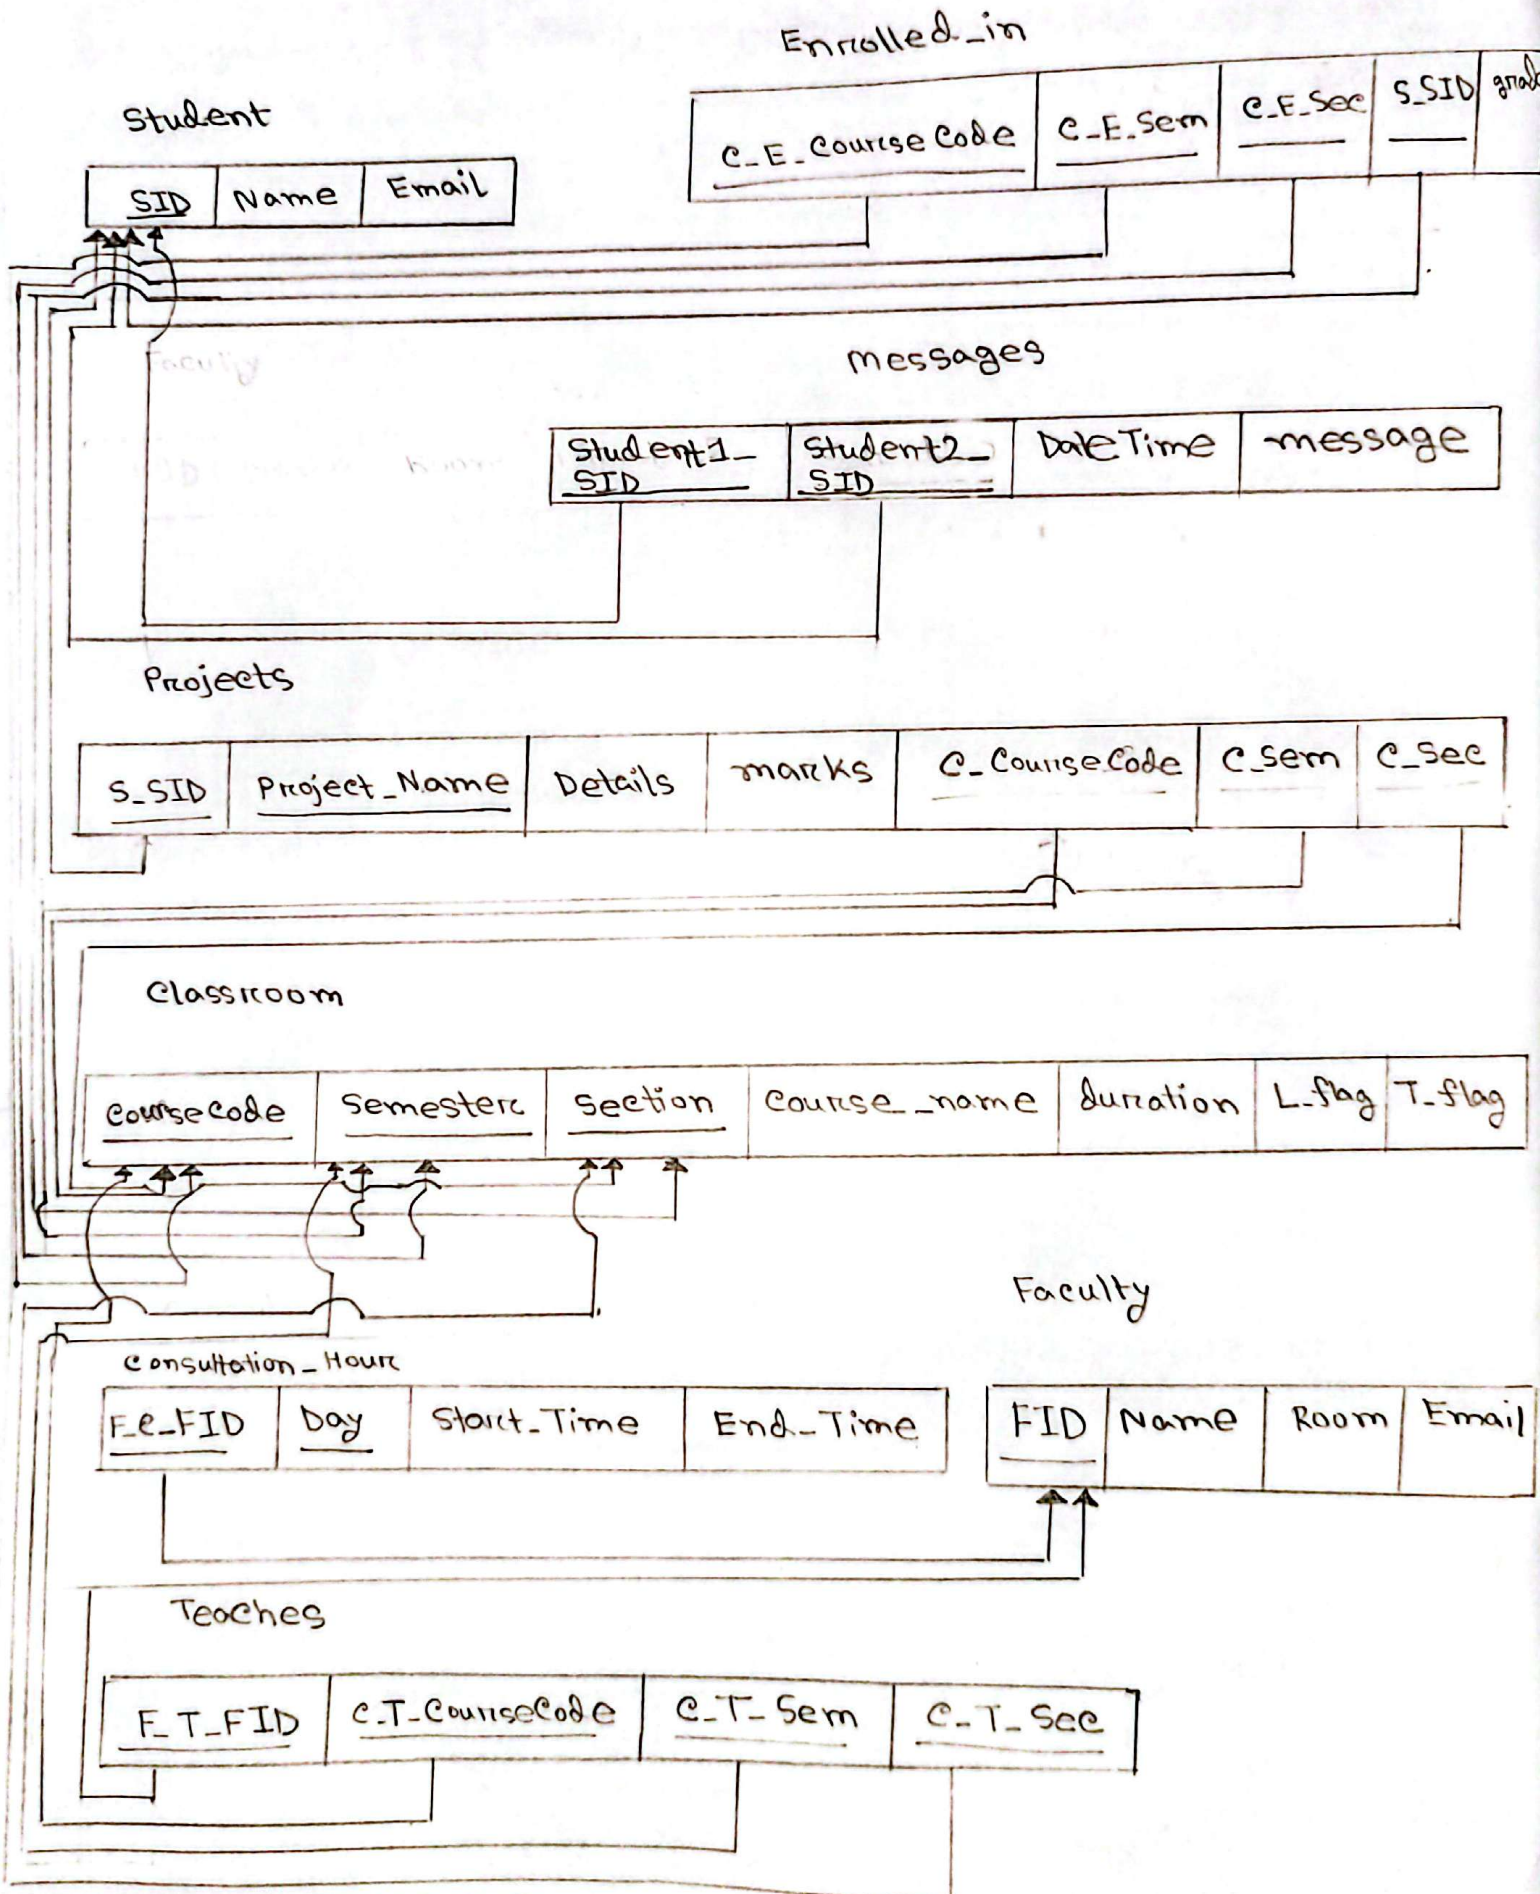 Enrolled_in
C_E_CourseCode C_E_Sem C_E_Sec S_SID
Student
SID Name Email
Faculty
messages
Student1_SID Student2_SID DateTime message
Projects
S_SID Project_Name Details marks C_CourseCode C_Sem C_Sec
Classroom
CourseCode Semester Section Course_name duration L_flag T_flag
Faculty
Consultation_Hour
F_C_FID Day Start_Time End_Time
FID Name Room Email
Teaches
F_T_FID C_T_CourseCode C_T_Sem C_T_Sec